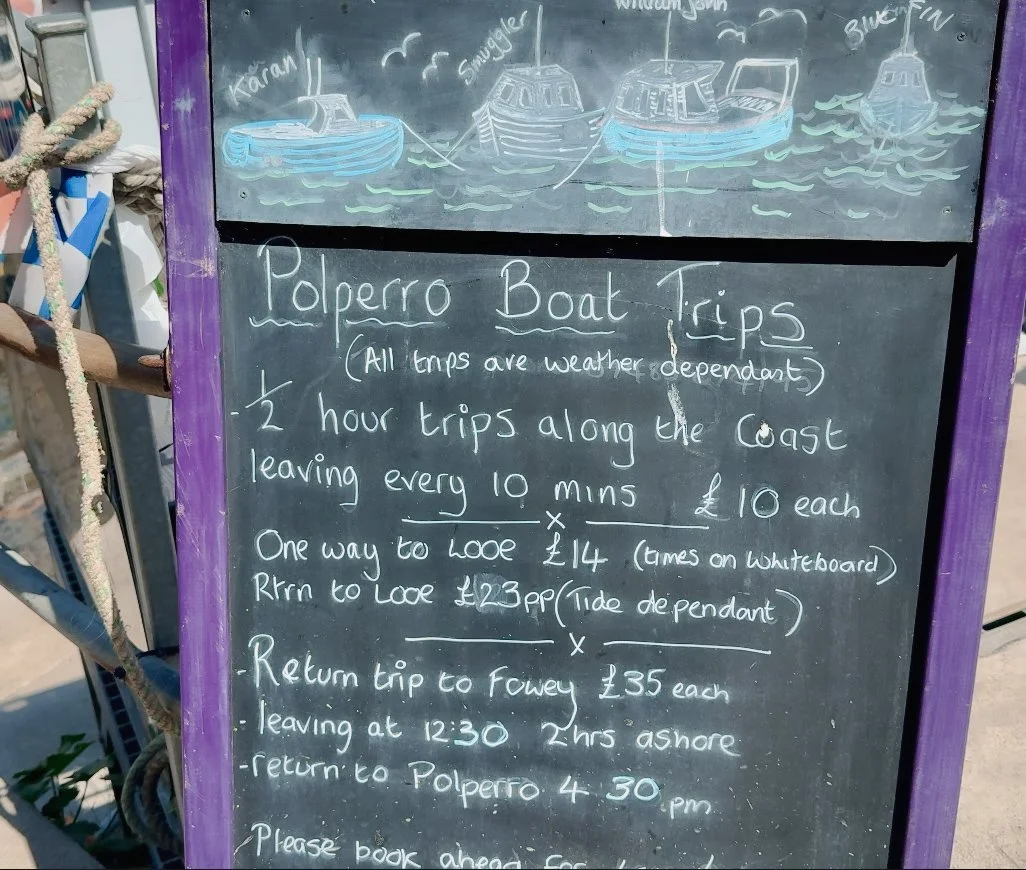 Karan
Smuggler
William John
Blue FIN
Polperro Boat Trips
(All trips are weather dependant)
- 1/2 hour trips along the Coast
leaving every 10 mins £10 each
x
One way to Looe £14 (times on whiteboard)
Rtrn to Looe £23pp (Tide dependant)
x
- Return trip to Fowey £35 each
- leaving at 12:30 2hrs ashore
- return to Polperro 4 30 pm
Please book ahead for